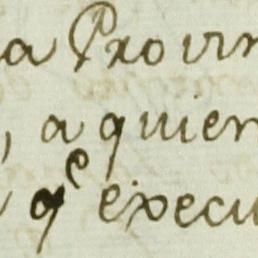 a Provin
, a quien
qᵉ execu